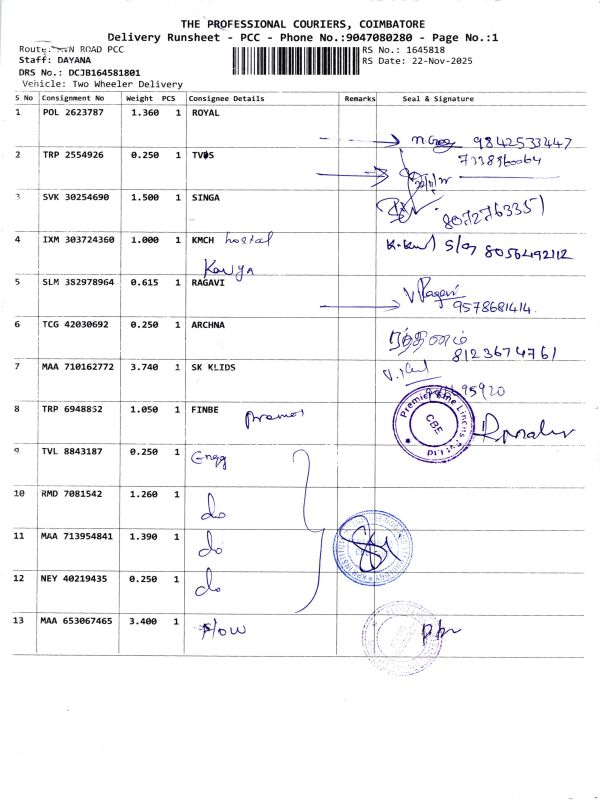 THE PROFESSIONAL COURIERS, COIMBATORE
Delivery Runsheet - PCC - Phone No.:9047080280 - Page No.:1
ROAD PCC
RS No.: 1645818
Staff: DAYANA
RS Date: 22-Nov-2025
DRS No.: DCJB164581801
Vehicle: Two Wheeler Delivery
S No Consignment No Weight PCS Consignee Details Remarks Seal & Signature
1 POL 2623787 1.360 1 ROYAL
9842533447
2 TRP 2554926 0.250 1 TVS
7338860064
3 SVK 30254690 1.500 1 SINGA
8072763351
4 IXM 303724360 1.000 1 KMCH hostal
8056492112
Kavya
5 SLM 382978964 0.615 1 RAGAVI
V Ragavi
9578681414
6 TCG 42030692 0.250 1 ARCHNA
8123674761
7 MAA 710162772 3.740 1 SK KLIDS
95920
8 TRP 6948852 1.050 1 FINBE
Premier Fine Linens Pvt Ltd
CBE
9 TVL 8843187 0.250 1 Engg
10 RMD 7081542 1.260 1 do
11 MAA 713954841 1.390 1 do
12 NEY 40219435 0.250 1 do
13 MAA 653067465 3.400 1 flow